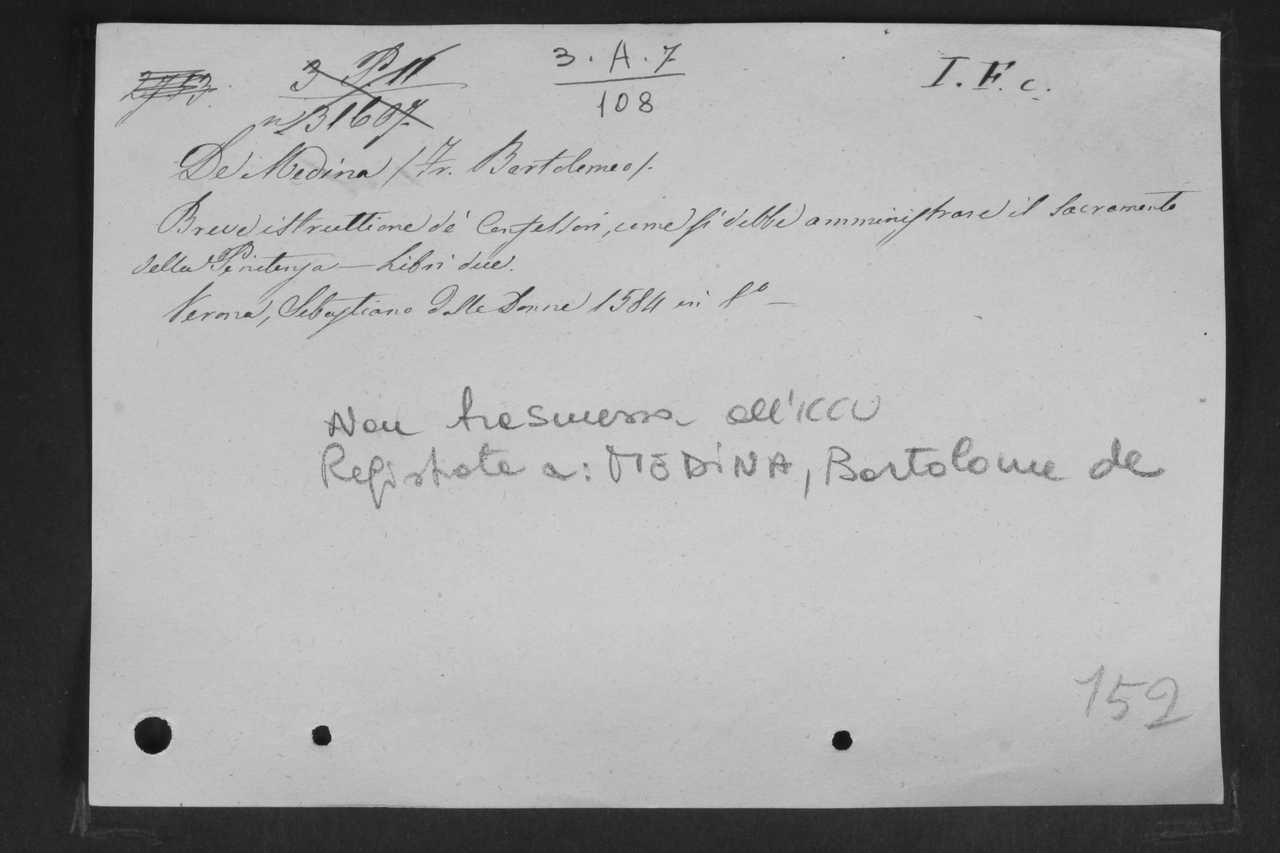 3 P 11 3 . A . 7 I. F. c.
n 131607. 108
De Medina / Fr. Bartolomeo /.
Breve istruttione de' Confessori, come si debbe amministrare il Sacramento
della Penitenza — Libri due.
Verona, Sebastiano dalle Donne 1584 in 8º —
Non trasmessa all'ICCU
Registrata a: MEDINA, Bartolome de
152